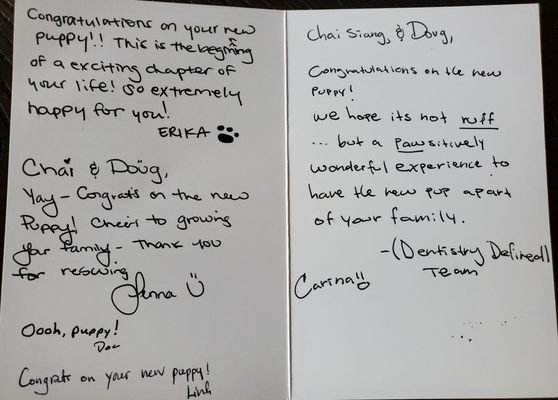 Congratulations on your new
puppy!! This is the begining
of a exciting chapter of
your life! So extremely
happy for you!
ERIKA
Chai & Doug,
Yay - Congrats on the new
Puppy! Cheers to growing
your family - Thank you
for rescuing
Jenna
Oooh, puppy!
Doc
Congrats on your new puppy!
Linh
Chai Siang & Doug,
Congratulations on the new
puppy!
we hope its not ruff
... but a pawsitively
wonderful experience to
have the new pup apart
of your family.
-(Dentistry Defined)
Team
Carina